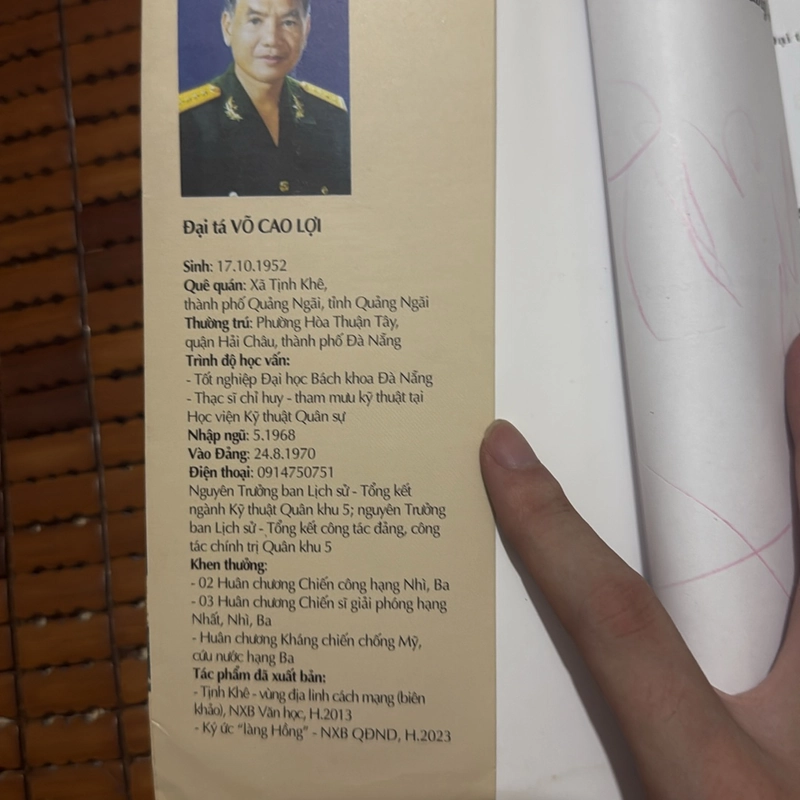 Đại tá VÕ CAO LỢI
Sinh: 17.10.1952
Quê quán: Xã Tịnh Khê,
thành phố Quảng Ngãi, tỉnh Quảng Ngãi
Thường trú: Phường Hòa Thuận Tây,
quận Hải Châu, thành phố Đà Nẵng
Trình độ học vấn:
- Tốt nghiệp Đại học Bách khoa Đà Nẵng
- Thạc sĩ chỉ huy - tham mưu kỹ thuật tại
Học viện Kỹ thuật Quân sự
Nhập ngũ: 5.1968
Vào Đảng: 24.8.1970
Điện thoại: 0914750751
Nguyên Trưởng ban Lịch sử - Tổng kết
ngành Kỹ thuật Quân khu 5; nguyên Trưởng
ban Lịch sử - Tổng kết công tác đảng, công
tác chính trị Quân khu 5
Khen thưởng:
- 02 Huân chương Chiến công hạng Nhì, Ba
- 03 Huân chương Chiến sĩ giải phóng hạng
Nhất, Nhì, Ba
- Huân chương Kháng chiến chống Mỹ,
cứu nước hạng Ba
Tác phẩm đã xuất bản:
- Tịnh Khê - vùng địa linh cách mạng (biên
khảo), NXB Văn học, H.2013
- Ký ức "làng Hồng" - NXB QĐND, H.2023